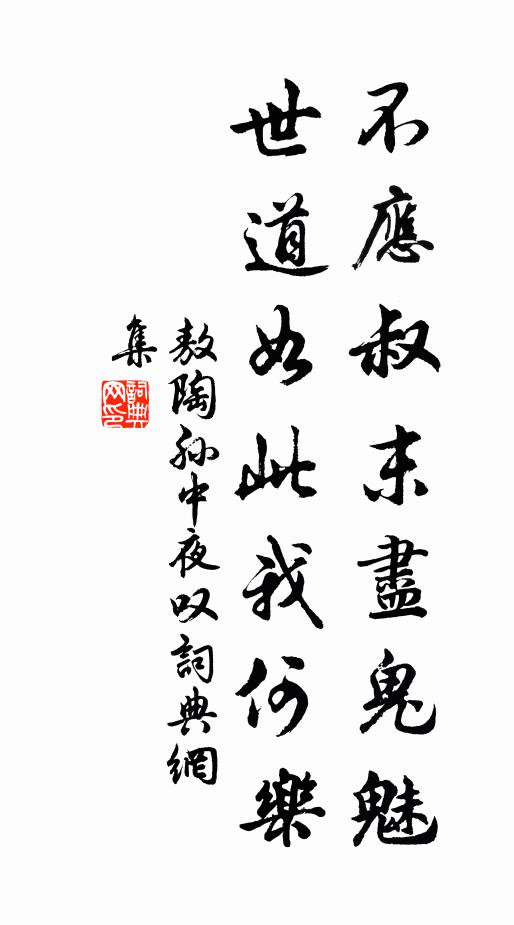 不應叔末盡鬼魅
世道如此我何樂
敖陶孙中夜叹詞典網
集
詞典
网印